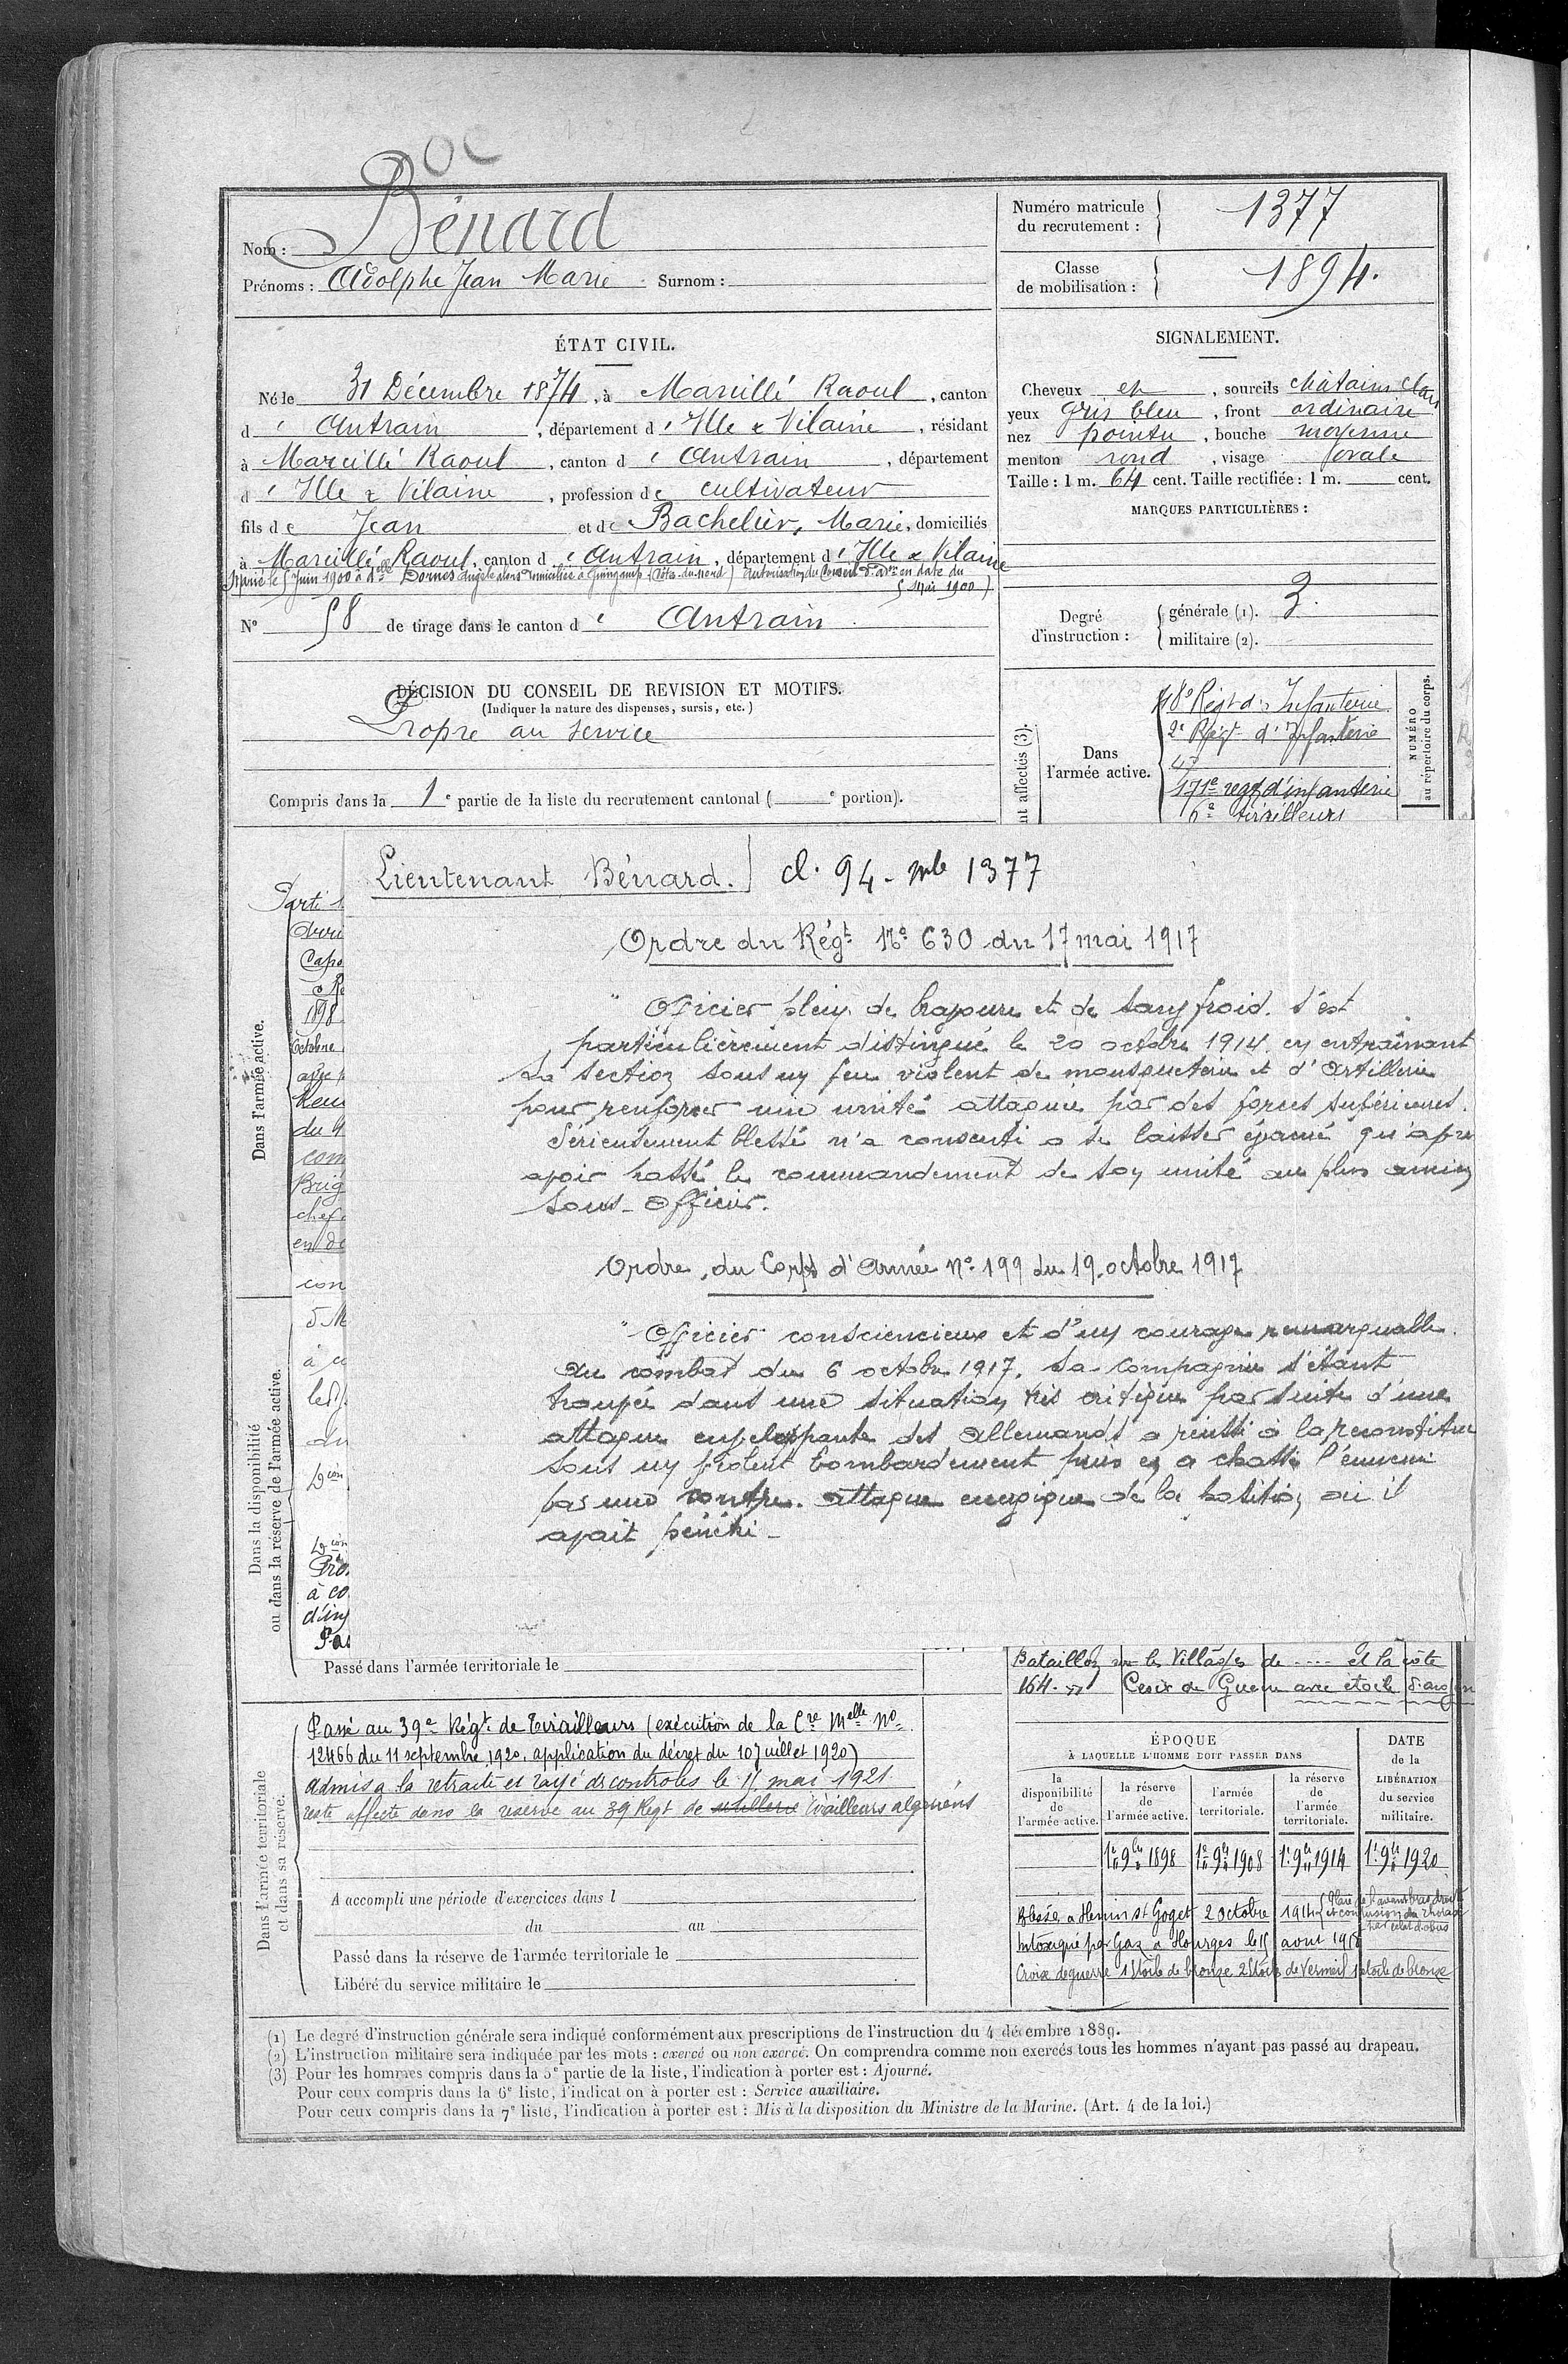 Bénard
Nom :
Prénoms : Adolphe Jean Marie Surnom :
Numéro matricule du recrutement : 1377
Classe de mobilisation : 1894.
ÉTAT CIVIL.
Né le 31 Décembre 1874, à Marcillé Raoul, canton
d' Antrain, département d' Ille & Vilaine, résidant
à Marcillé Raoul, canton d' Antrain, département
d' Ille & Vilaine, profession de cultivateur
fils de Jean et de Bachelier, Marie, domiciliés
à Marcillé Raoul, canton d' Antrain, département d' Ille & Vilaine
Marié le 5 Juin 1900 à Delle Dornes Angèle alors domiciliée à Guingamp (Côtes-du-nord) autorisation du Conseil d'adon en date du
5 Mai 1900)
N° 58 de tirage dans le canton d' Antrain
SIGNALEMENT.
Cheveux et, sourcils châtains clairs
yeux gris bleu, front ordinaire
nez pointu, bouche moyenne
menton rond, visage ovale
Taille : 1 m. 64 cent. Taille rectifiée : 1 m. cent.
MARQUES PARTICULIÈRES :
Degré d'instruction : générale (1). 3.
militaire (2).
DÉCISION DU CONSEIL DE REVISION ET MOTIFS.
(Indiquer la nature des dispenses, sursis, etc.)
Propre au service
Compris dans la 1e partie de la liste du recrutement cantonal ( e portion).
nt affectés (3).
Dans l'armée active.
48e Régt d'Infanterie
2e Régt d'Infanterie
47
171e regt d'infanterie
6e tirailleurs
NUMÉRO
au répertoire du corps.
Lieutenant Bénard. cl. 94 - mle 1377
Ordre du Régt N° 630 du 17 mai 1917
" Officier plein de bravoure et de sang froid. s'est
particulièrement distingué le 20 octobre 1914. en entraînant
sa section sous un feu violent de mousqueterie et d'artillerie
pour renforcer une unité attaquée par des forces supérieures.
Sérieusement blessé n'a consenti a se laisser évacué qu'apre
avoir passé le commandement de son unité au plus ancien
sous-officier.
Ordre du Corps d'Armée N° 199 du 19 octobre 1917
" Officier consciencieux et d'un courage remarquable.
au combat du 6 octobre 1917. sa compagnie s'étant
trouvée dans une situation très critique par suite d'une
attaque enveloppante des allemands a réussi à la reconstituer
sous un violent bombardement puis en a chassé l'ennemi
par une contre-attaque energique de la position où il
avait pénétré -
Dans l'armée active.
Parti
Capo
1898
Octobre
du 4
com
Brig
chef
en de
con
Dans la disponibilité
ou dans la réserve de l'armée active.
à co
d'inf
Pas
Passé dans l'armée territoriale le
Bataillon sur les Villages de .... et la côte
164. » Croix de Guerre avec étoile d'argen
Dans l'armée territoriale
et dans sa réserve.
Passé au 39e Régt de Tirailleurs (exécution de la Cre Melle No
12466 du 11 septembre 1920, application du décret du 10 Juillet 1920)
admis a la retraite et rayé des controles le 11 mai 1921
reste affecté dans la reserve au 39 Regt de tirailleurs algeriens
A accompli une période d'exercices dans l
du au
Passé dans la réserve de l'armée territoriale le
Libéré du service militaire le
ÉPOQUE
À LAQUELLE L'HOMME DOIT PASSER DANS
la disponibilité de l'armée active.
la réserve de l'armée active.
l'armée territoriale.
la réserve de l'armée territoriale.
DATE de la LIBÉRATION du service militaire.
1er 9bre 1898 1er 9bre 1908 1er 9bre 1914 1er 9bre 1920
Blessé a Henin st Goget 2 Octobre 1914 (Plaie de l'avant bras droit
et contusion du thorax
par eclat d'obus
Intoxiqué par Gaz a Hourges le 15 aout 1918
Croix de guerre 1 Etoile de bronze 2 Etoile de Vermeil 1 etoile de bronze
(1) Le degré d'instruction générale sera indiqué conformément aux prescriptions de l'instruction du 4 décembre 1889.
(2) L'instruction militaire sera indiquée par les mots : exercé ou non exercé. On comprendra comme non exercés tous les hommes n'ayant pas passé au drapeau.
(3) Pour les hommes compris dans la 5e partie de la liste, l'indication à porter est : Ajourné.
Pour ceux compris dans la 6e liste, l'indication à porter est : Service auxiliaire.
Pour ceux compris dans la 7e liste, l'indication à porter est : Mis à la disposition du Ministre de la Marine. (Art. 4 de la loi.)